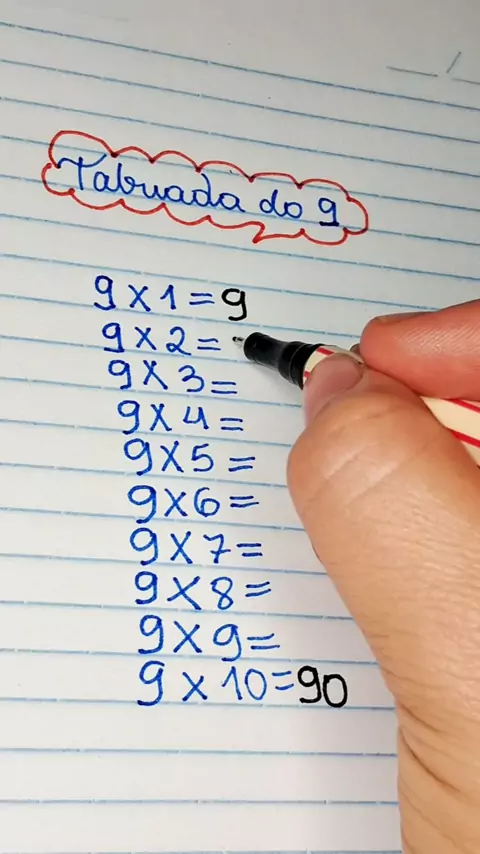 Tabuada do 9
9 x 1 = 9
9 x 2 =
9 x 3 =
9 x 4 =
9 x 5 =
9 x 6 =
9 x 7 =
9 x 8 =
9 x 9 =
9 x 10 = 90